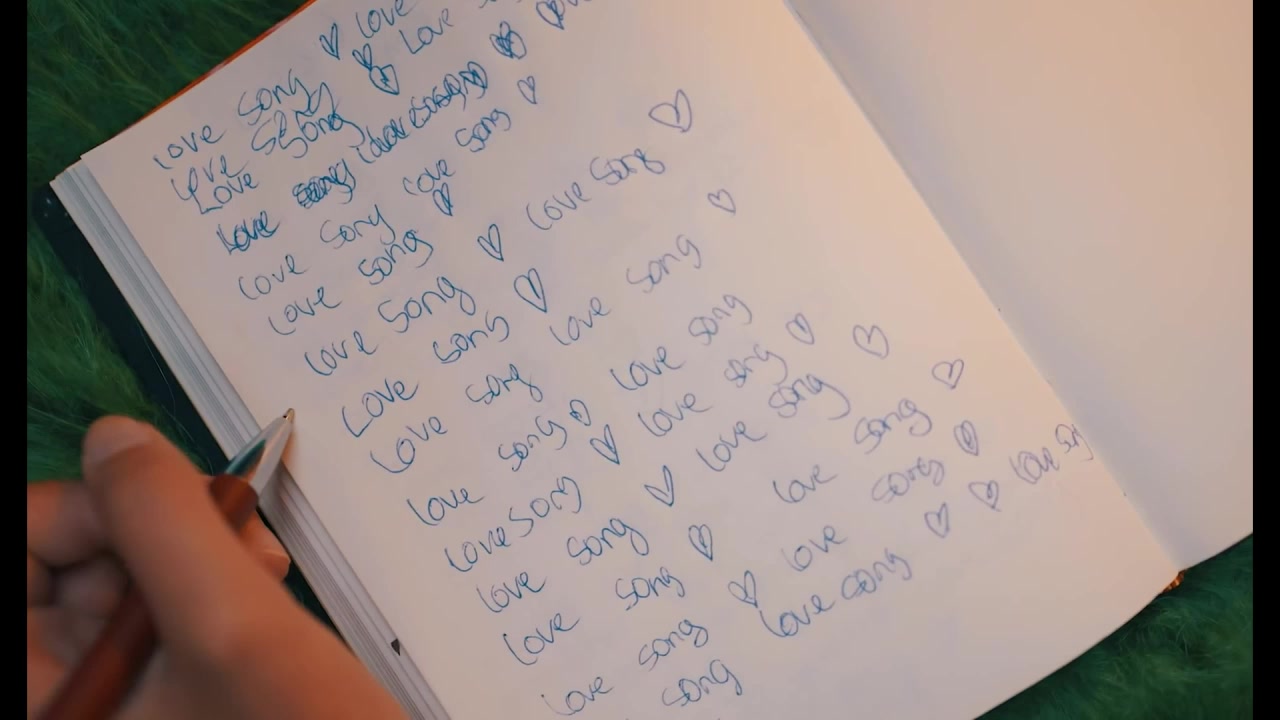 love song ♡ love
Love song ♡ Love
Love song
Love song love song ♡
love song love song ♡
love song ♡
love song ♡ love song ♡
Love song ♡
Love song love song ♡
love song ♡ love song
love song ♡ love song ♡
love song ♡ love song ♡
love song ♡ love song ♡
love song ♡ love song ♡
song love song ♡ ♡ love